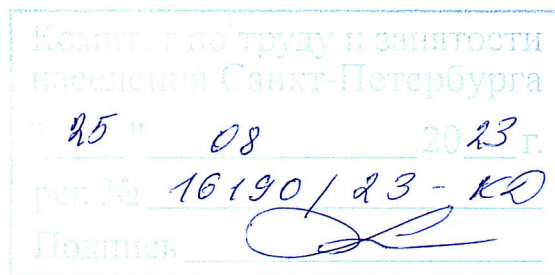 Комитет по труду и занятости
населения Санкт-Петербурга
"25" 08 2023 г.
рег. № 16190/23-КД
Подпись